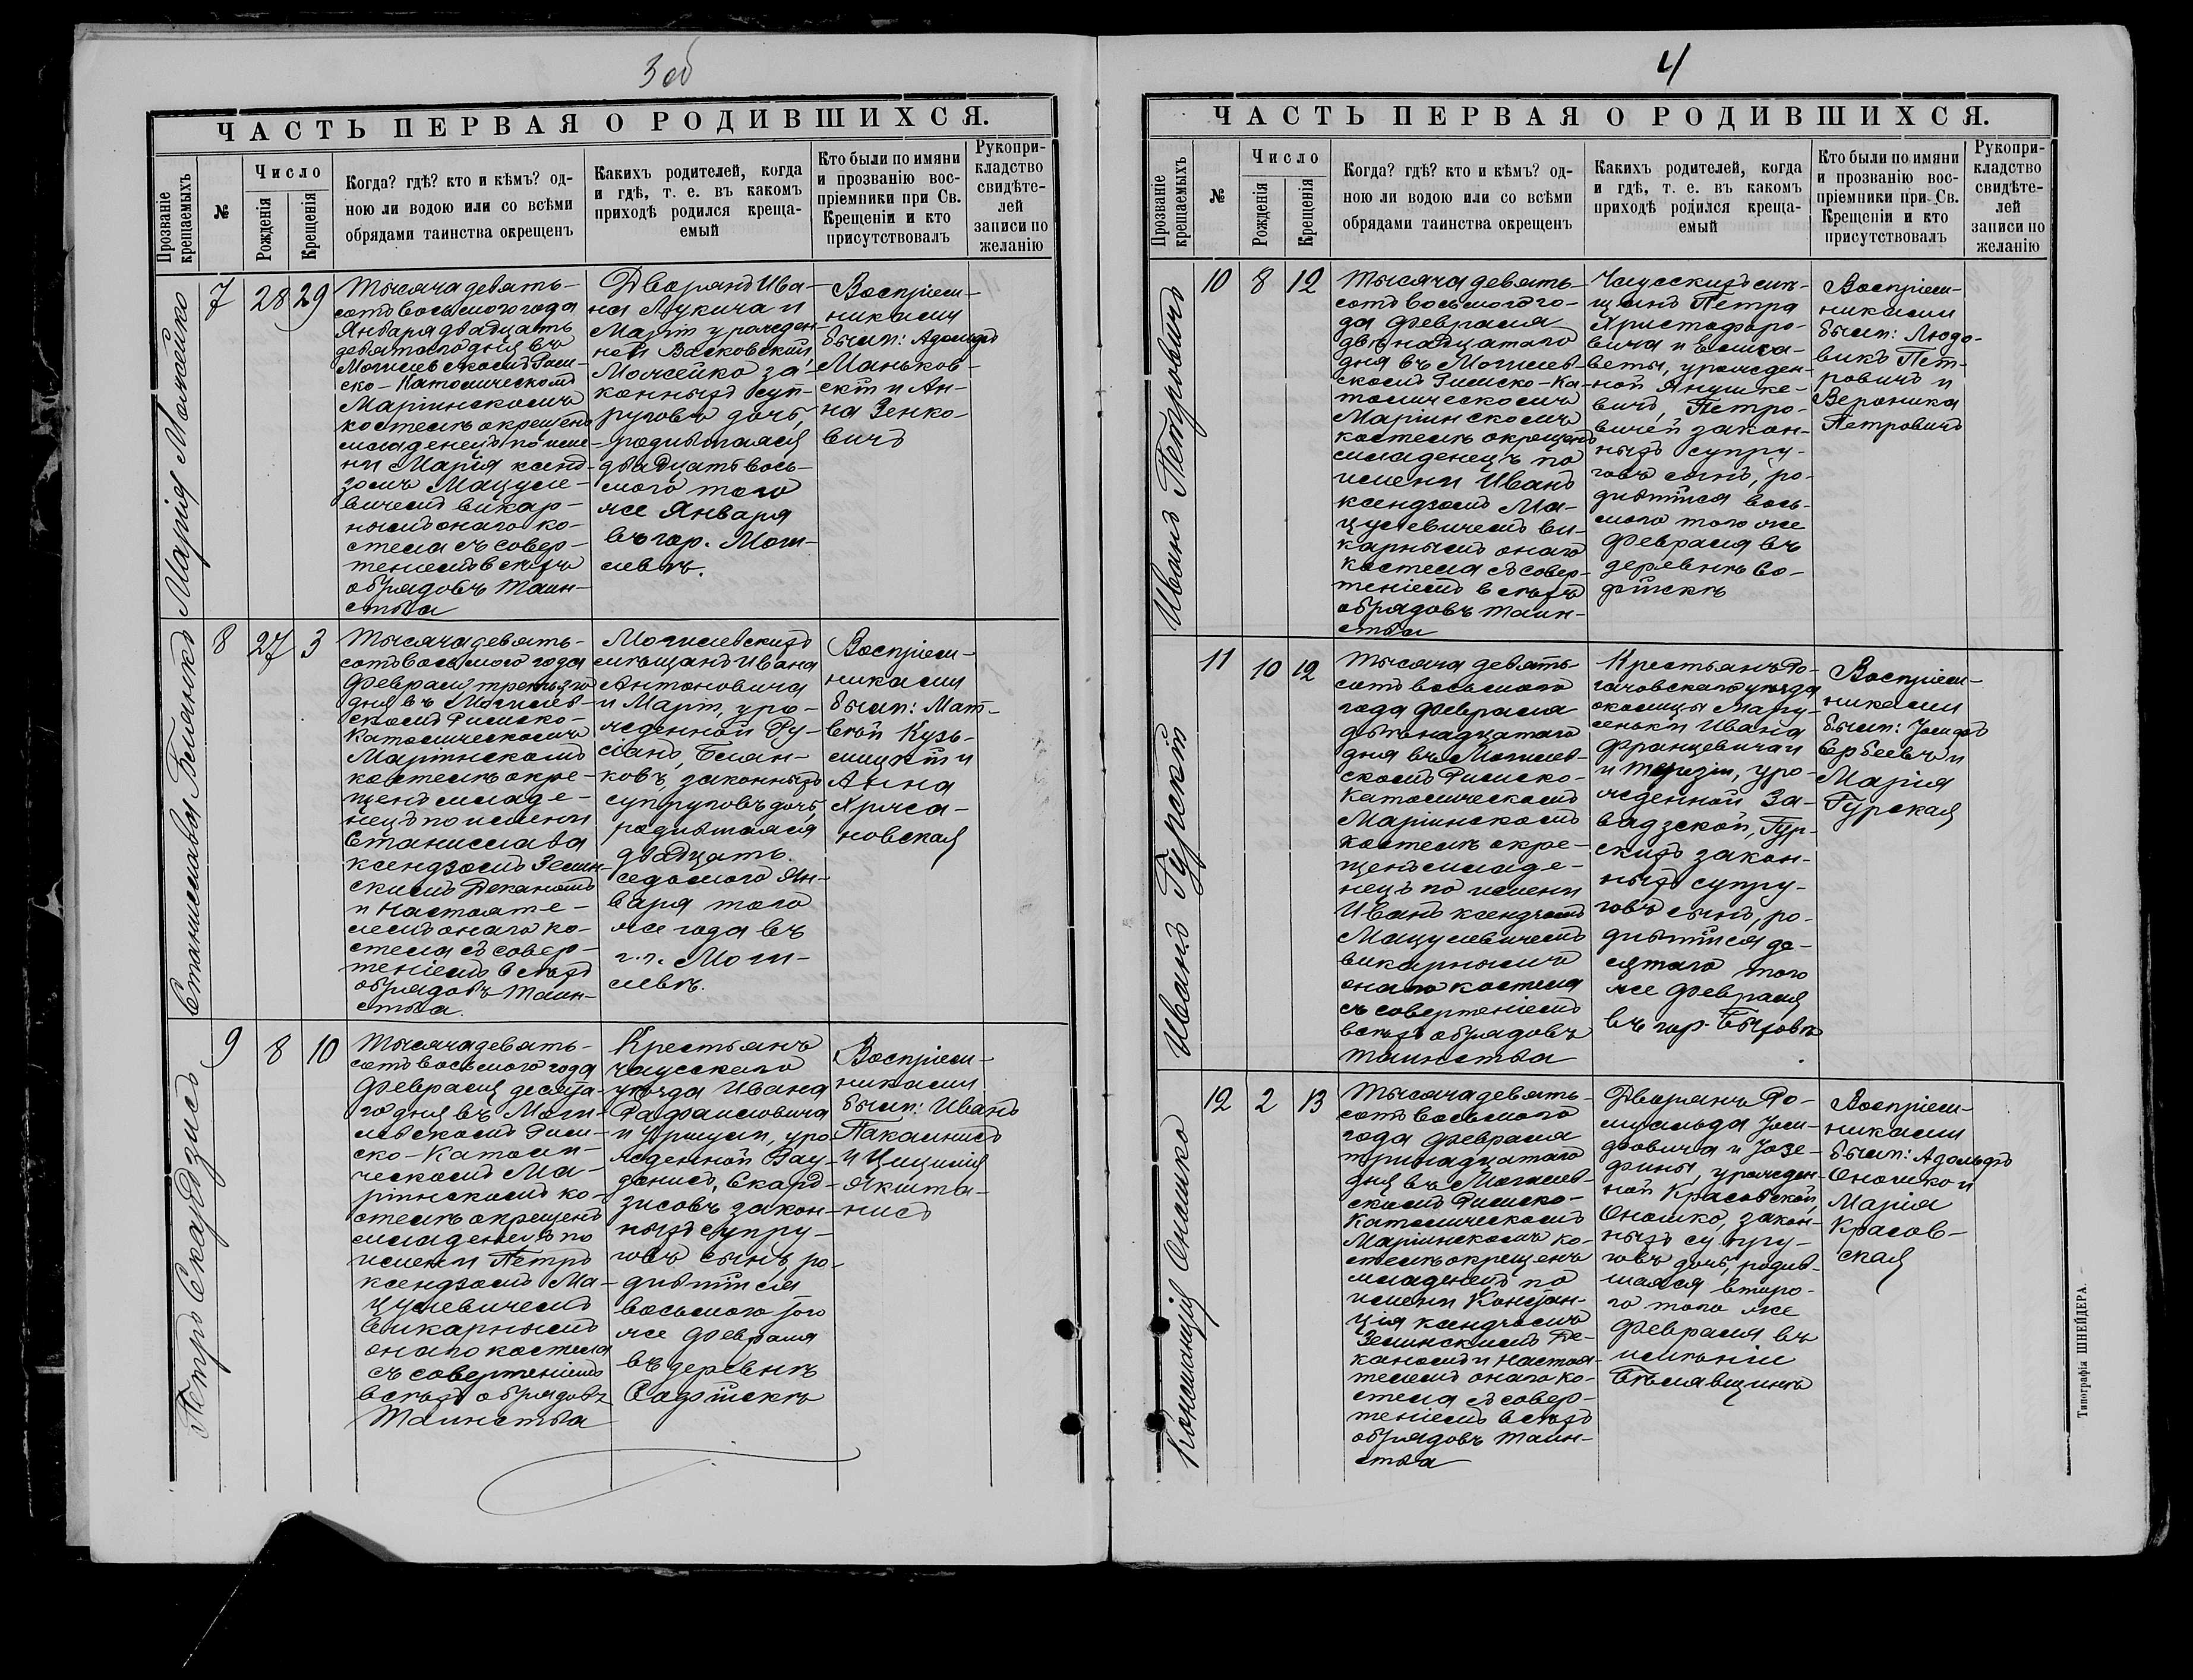 3 об
ЧАСТЬ ПЕРВАЯ О РОДИВШИХСЯ.
Прозваніе крещаемыхъ
№
Число
Рожденія
Крещенія
Когда? гдѣ? кто и кѣмъ? од-
ною ли водою или со всѣми
обрядами таинства окрещенъ
Какихъ родителей, когда
и гдѣ, т. е. въ какомъ
приходѣ родился креща-
емый
Кто были по имяни
и прозванію вос-
пріемники при Св.
Крещеніи и кто
присутствовалъ
Рукопри-
кладство
свидѣте-
лей
записи по
желанію
Марія Можейко
7
28
29
Тысяча девять-
сотъ восьмого года
Января двадцать
девятаго дня въ
Могилевскомъ Рим-
ско-Католическомъ
Маріинскомъ
костелѣ окрещенъ
младенецъ по име-
ни Марія ксенд-
зомъ Мацуле-
вичемъ викар-
нымъ онаго ко-
стела съ совер-
шеніемъ всѣхъ
обрядовъ Таин-
ства
Дворянъ Ива-
на Лукича и
Март урожден-
ной Васковской,
Можейко за-
конныхъ суп-
руговъ дочь,
родившаяся
двадцать вось-
мого того
же Января
въ гор. Моги-
левѣ.
Воспріем-
никами
были: Адольфъ
Маньков-
скій и Ан-
на Зенко-
вичъ
8
27
3
Тысяча девять-
сотъ восьмого года
Феврали третьяго
дня въ Могилев-
скомъ Римско-
Католическомъ
Маріинскомъ
костелѣ окре-
щенъ младе-
нецъ по имени
Станислава
ксендзомъ Зелин-
скимъ Деканомъ
и Настояте-
лемъ онаго ко-
стела съ совер-
шеніемъ всѣхъ
обрядовъ Таин-
ства.
Могилевскихъ
мѣщанъ Ивана
Антоновича
и Март, уро-
жденной Ру-
санъ,
законныхъ
супруговъ дочь,
родившаяся
двадцать
седьмого Ян-
варя того
же года въ
г. г. Моги-
левѣ.
Воспріем-
никами
были: Мат-
вей Кузь-
мицкій и
Анна
Хржа-
новская
Петръ Скардзисъ
9
8
10
Тысяча девять-
сотъ восьмого года
Февраля десята-
го дня въ Моги-
левскомъ Рим-
ско-Католи-
ческомъ Ма-
ріинскомъ ко-
стелѣ окрещенъ
младенецъ по
имени Петръ
ксендзомъ Ма-
цулевичемъ
Викарнымъ
онаго костела
съ совершеніемъ
всѣхъ обрядовъ
Таинства
Крестьянъ
Чаусскаго
уѣзда Ивана
Рафаиловича
и Уршули, уро-
жденной
Скард-
зисовъ закон-
ныхъ супру-
говъ сынъ, ро-
дившійся
восьмого того
же Февраля
въ деревнѣ
Софійскѣ
Воспріем-
никами
были: Иванъ
Пакальнисъ
и Цецилія
Якшта-
нисъ
4
ЧАСТЬ ПЕРВАЯ О РОДИВШИХСЯ.
Прозваніе крещаемыхъ
№
Число
Рожденія
Крещенія
Когда? гдѣ? кто и кѣмъ? од-
ною ли водою или со всѣми
обрядами таинства окрещенъ
Какихъ родителей, когда
и гдѣ, т. е. въ какомъ
приходѣ родился креща-
емый
Кто были по имяни
и прозванію вос-
пріемники при Св.
Крещеніи и кто
присутствовалъ
Рукопри-
кладство
свидѣте-
лей
записи по
желанію
Иванъ Петровичъ
10
8
12
Тысяча девять-
сотъ восьмого го-
да Февраля
двѣнадцатаго
дня въ Могилев-
скомъ Римско-Ка-
толическомъ
Маріинскомъ
костелѣ окрещенъ
младенецъ по
имени Иванъ
ксендзомъ Ма-
цулевичемъ ви-
карнымъ онаго
костела съ совер-
шеніемъ всѣхъ
обрядовъ таин-
ства
Чаусскихъ мѣ-
щанъ Петра
Христофоро-
вича и Елиса-
веты, урожден-
ной Янушке-
вичъ, Петро-
вичей закон-
ныхъ супру-
говъ сынъ, ро-
дившійся вось-
мого того же
Февраля въ
деревнѣ Со-
фійскѣ
Воспріем-
никами
были: Людо-
викъ Пет-
ровичъ и
Вероника
Петровичъ
Иванъ Гурскій
11
10
12
Тысяча девять-
сотъ восьмого
года Февраля
двѣнадцатаго
дня въ Могилев-
скомъ Римско-
Католическомъ
Маріинскомъ
костелѣ окре-
щенъ младе-
нецъ по имени
Иванъ ксендзомъ
Мацулевичемъ
викарнымъ
онаго костела
съ совершеніемъ
всѣхъ обрядовъ
таинства
Крестьянъ Ро-
гачовскаго уѣзда
околицы Мару-
сеньки Ивана
Францевича и
и Терезіи, уро-
жденной За-
вадзской, Гур-
скихъ закон-
ныхъ супру-
говъ сынъ, ро-
дившійся де-
сятаго того
же Февраля
въ гор. Быховѣ
Воспріем-
никами
были: Іосифъ
и
Марія
Гурская
Констанція Оношко
12
2
13
Тысяча девять-
сотъ восьмого
года Февраля
тринадцатаго
дня въ Могилев-
скомъ Римско-
Католическомъ
Маріинскомъ ко-
стелѣ окрещенъ
младенецъ по
имени Констан-
ція ксендзомъ
Зелинскимъ Де-
каномъ и Настоя-
телемъ онаго ко-
стела съ совер-
шеніемъ всѣхъ
обрядовъ таин-
ства
Дворянъ Ро-
муальда Іоси-
фовича и Іозе-
фины, урожден-
ной Красовской,
Оношко, закон-
ныхъ супру-
говъ дочь, родив-
шаяся второ-
го того же
Февраля въ
имѣніи
Бѣлявщинѣ
Воспріем-
никами
были: Адольфъ
Оношко и
Марія
Красов-
ская
Типографія ШНЕЙДЕРА.